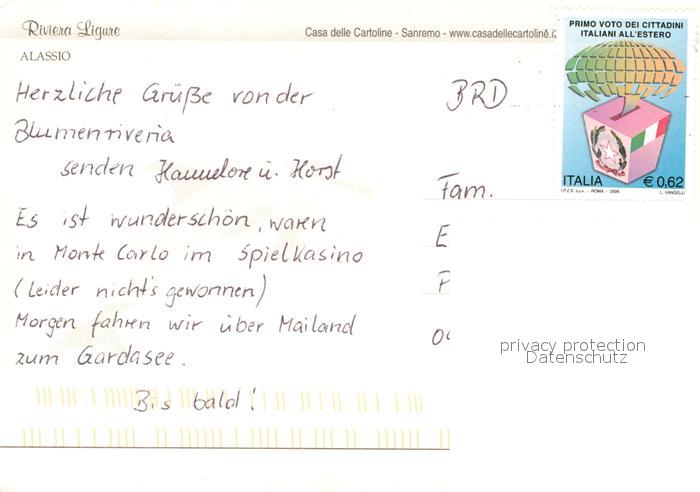 Riviera Ligure
Casa delle Cartoline - Sanremo - www.casadellecartoline.it
ALASSIO
PRIMO VOTO DEI CITTADINI
ITALIANI ALL'ESTERO
ITALIA € 0.62
I.P.Z.S. S.p.A. - ROMA - 2006 L. VANGELLI
Herzliche Grüße von der
Blumenriveria
senden Hannelore u. Horst
Es ist wunderschön, waren
in Monte Carlo im Spielkasino
(Leider nicht's gewonnen)
Morgen fahren wir über Mailand
zum Gardasee.
Bis bald!
BRD
Fam.
E
P
privacy protection
Datenschutz